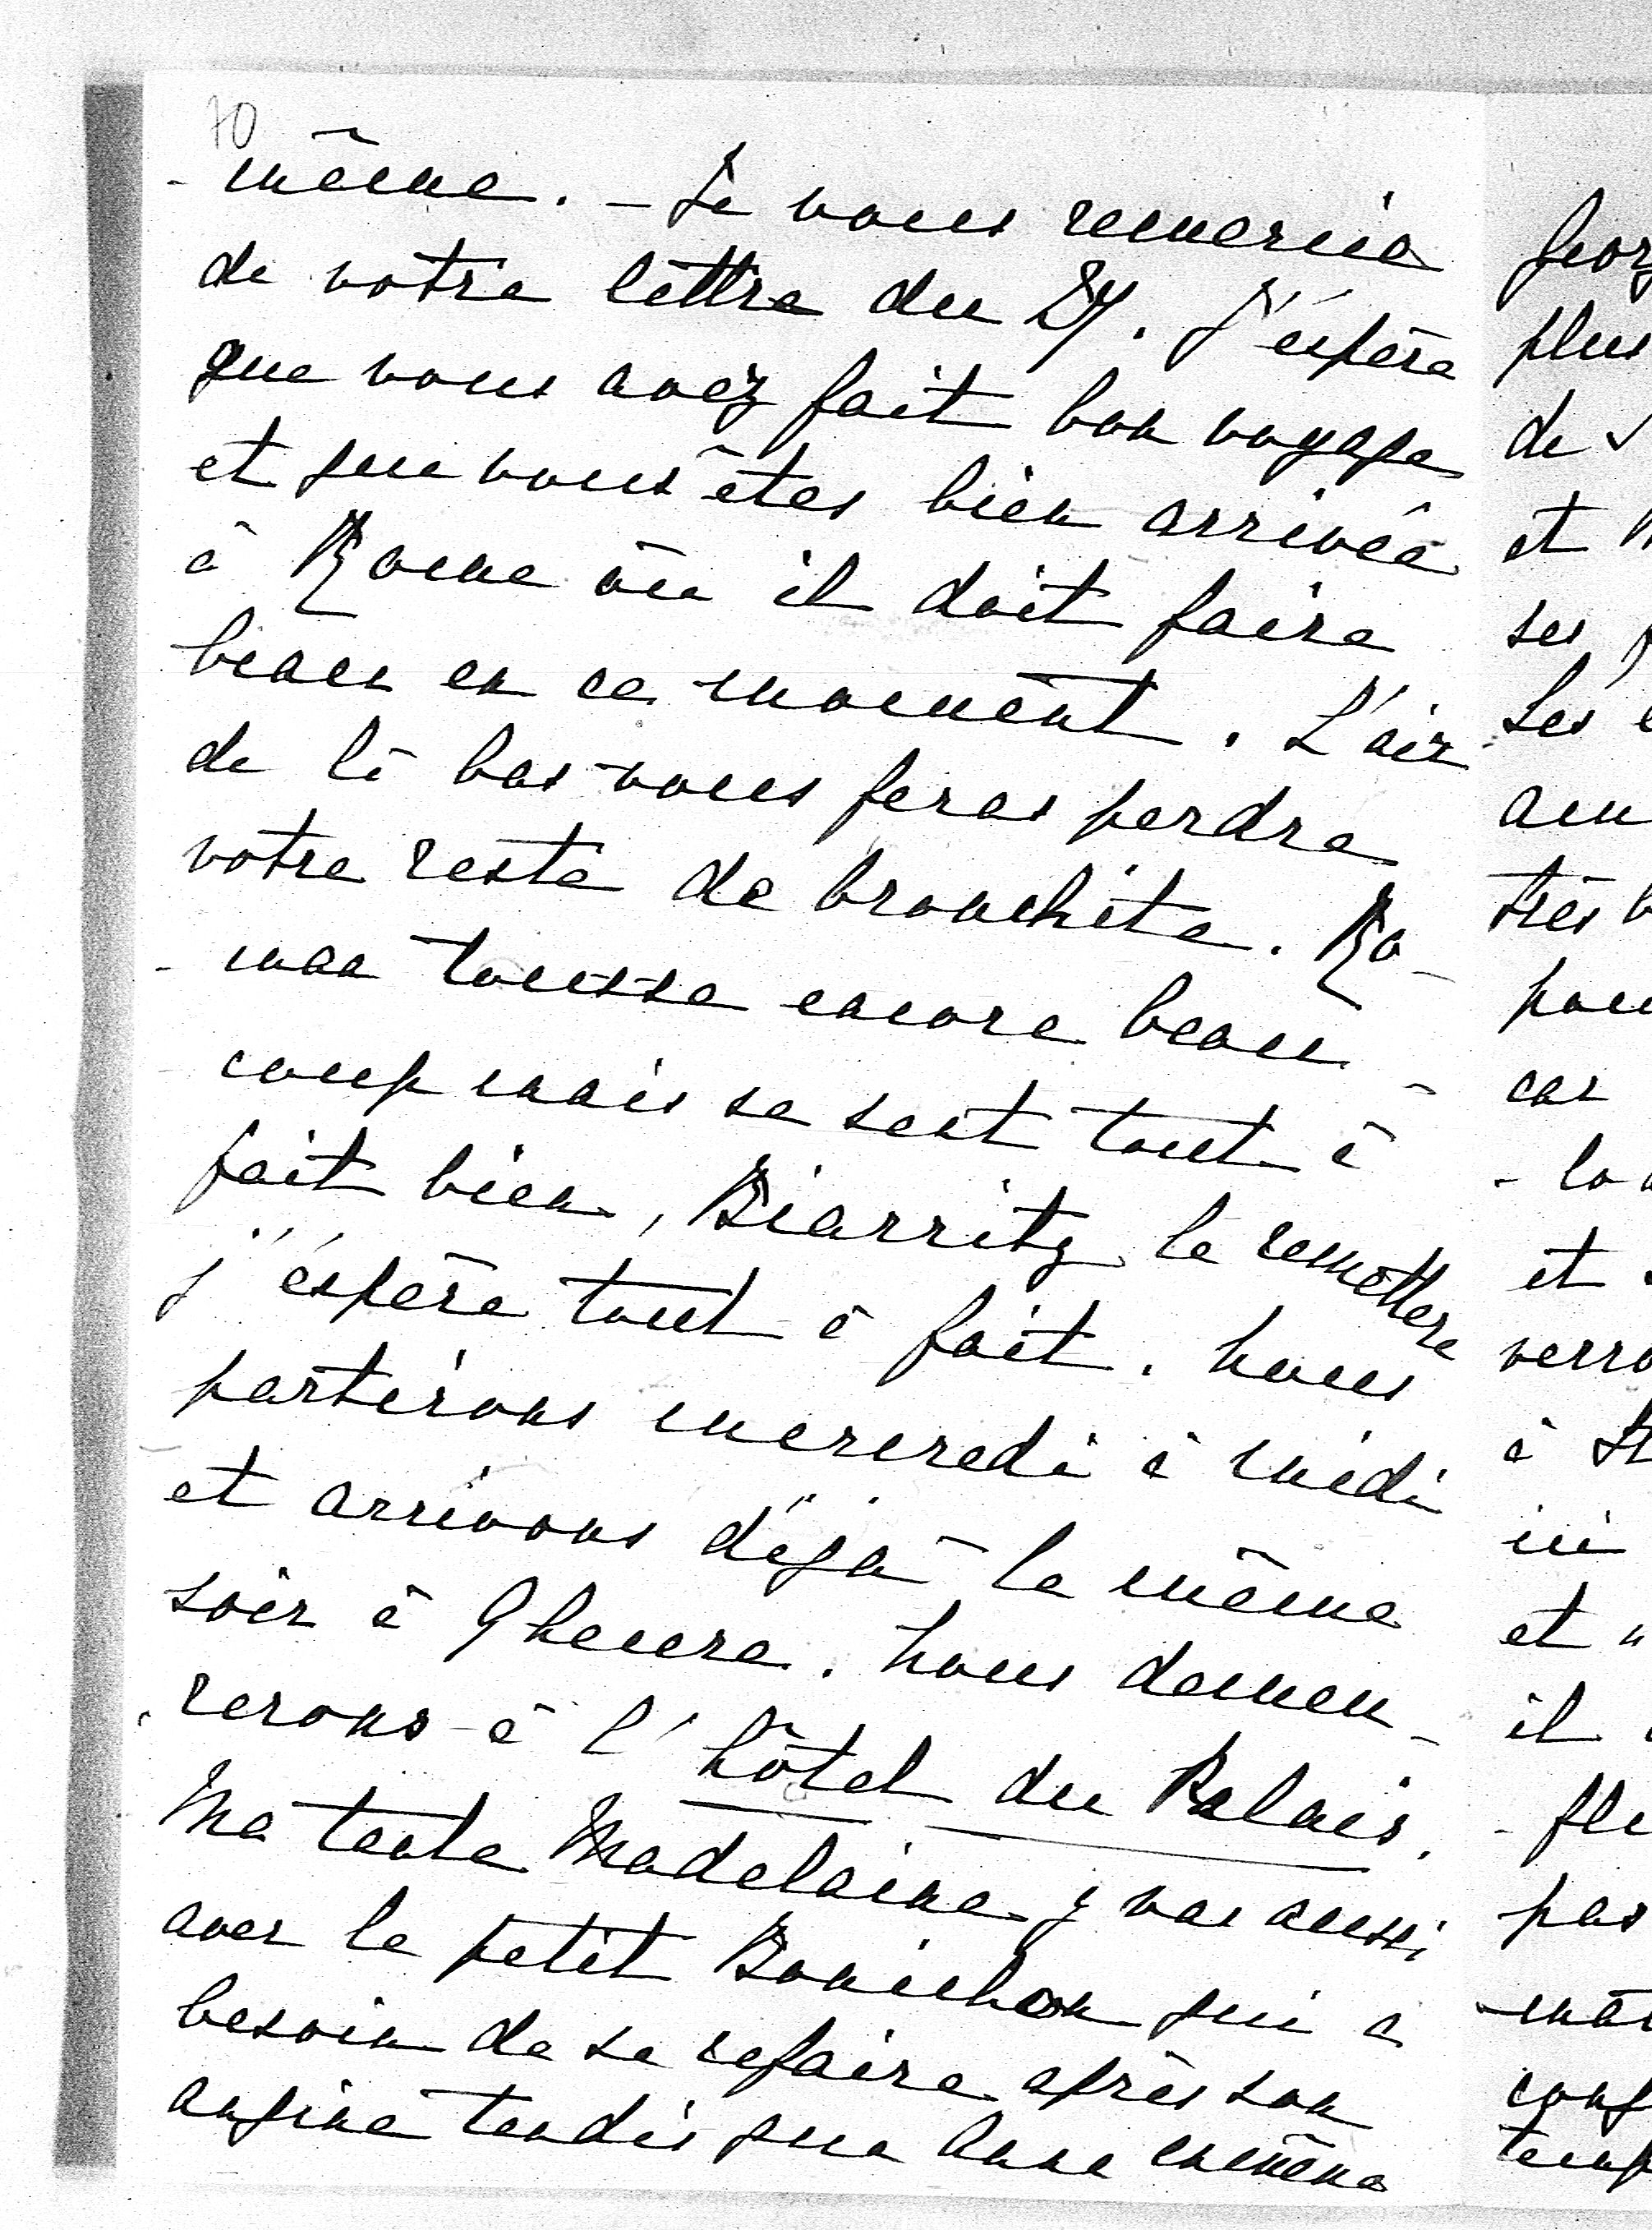 70
- même. - Je vous remercie
de votre lettre du 27. J'éspère
que vous avez fait bon voyage
et que vous êtes bien arrivée
à Rome où il doit faire
beau en ce moment. L'air
de là bas vous feras perdre
votre reste de bronchite. Ro-
- maa tousse encore beau-
- coup mais se sent tout à
fait bien, Biarritz le remettera
j'éspère tout à fait. Nous
partirons mercredi à midi
et arrivons déjà le même
soir à 9 heures. Nous demeu-
- rerons à l'hôtel du Palais.
Ma tante Madelaine y vas aussi
avec le petit Bonichon qui a
besoin de se refaire après son
angine tandis que Anne emmène
plus
de
et
ses
Les
très
car
et
à
ici
et
il
pas